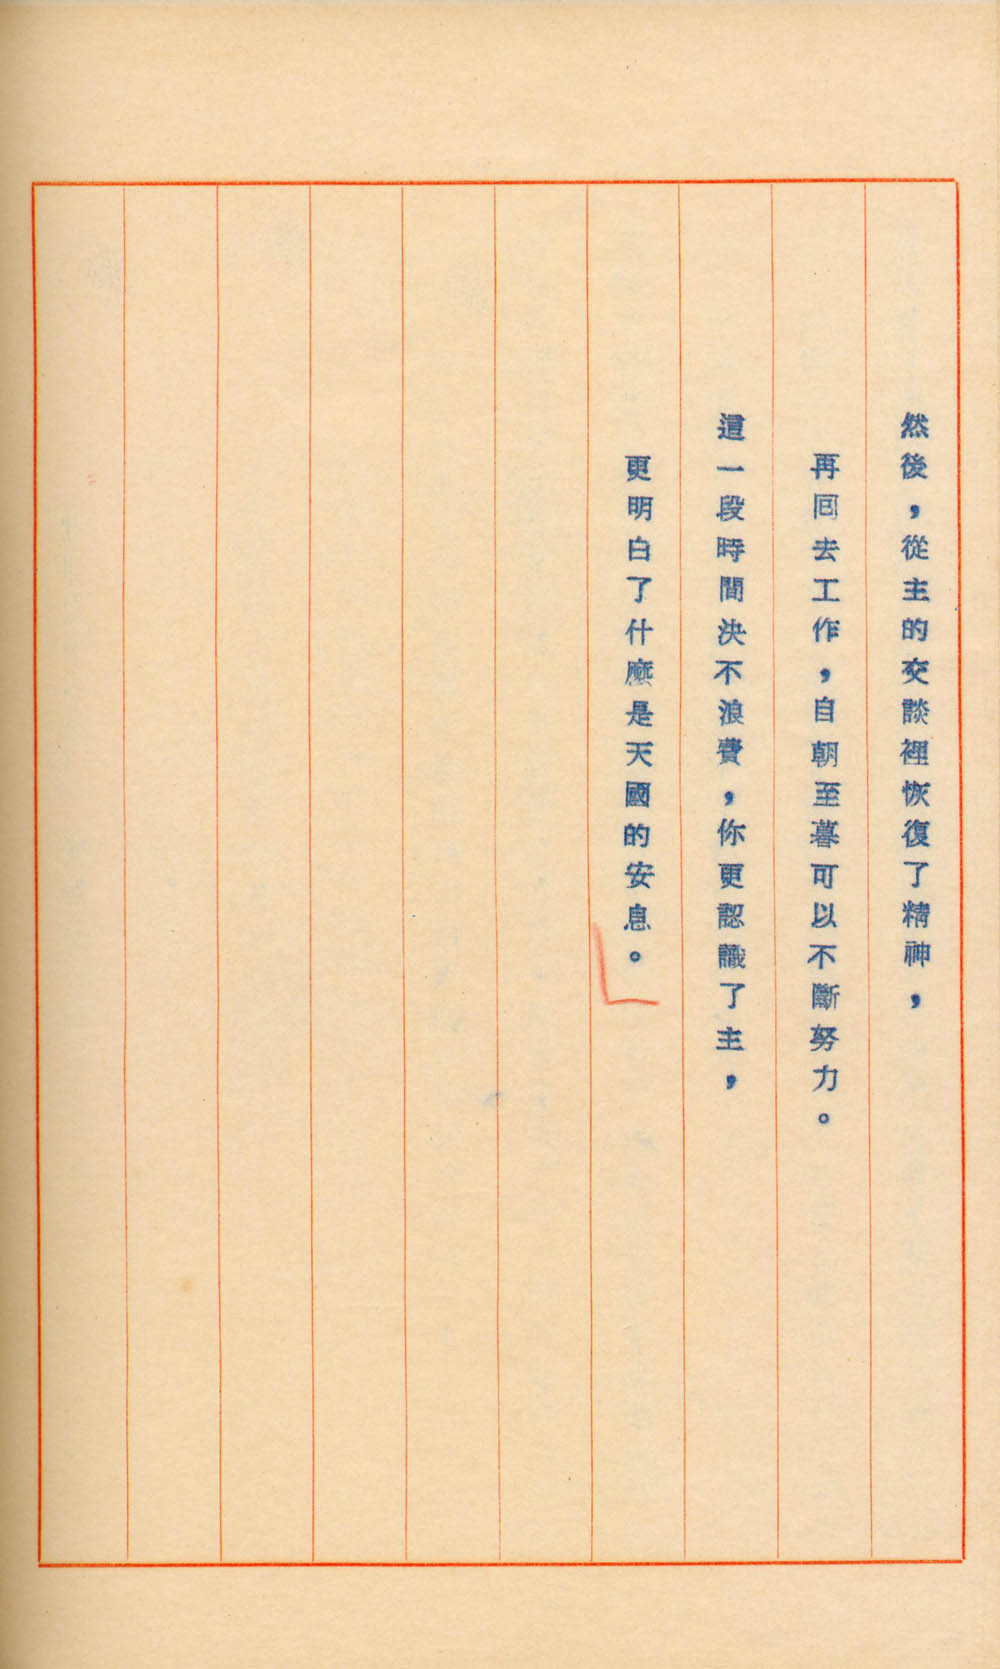 然後，從主的交談裡恢復了精神，
再回去工作，自朝至暮可以不斷努力。
這一段時間決不浪費，你更認識了主，
更明白了什麼是天國的安息。